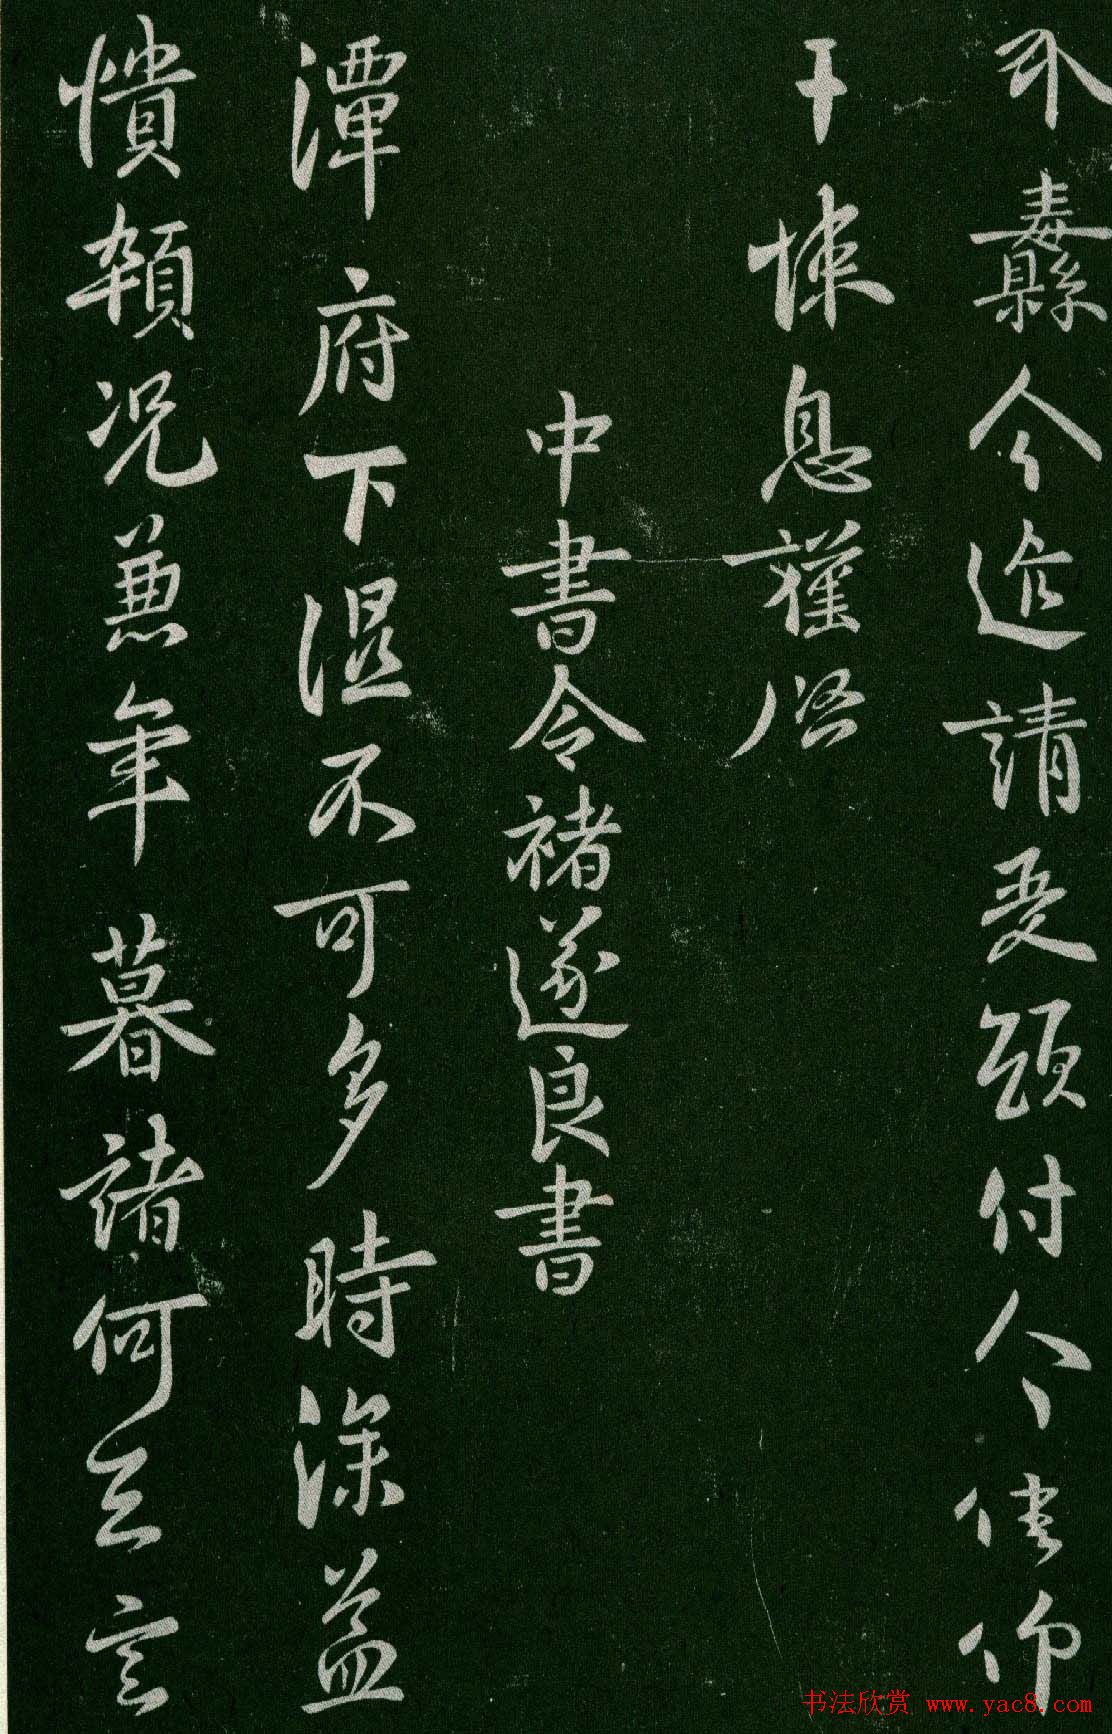 纛今請受領付人人使仰
干悚息謹啓
中書令褚遂良書
潭府下濕不可多時深益
憒況兼年暮諸何言
书法欣赏 www.yac8.com